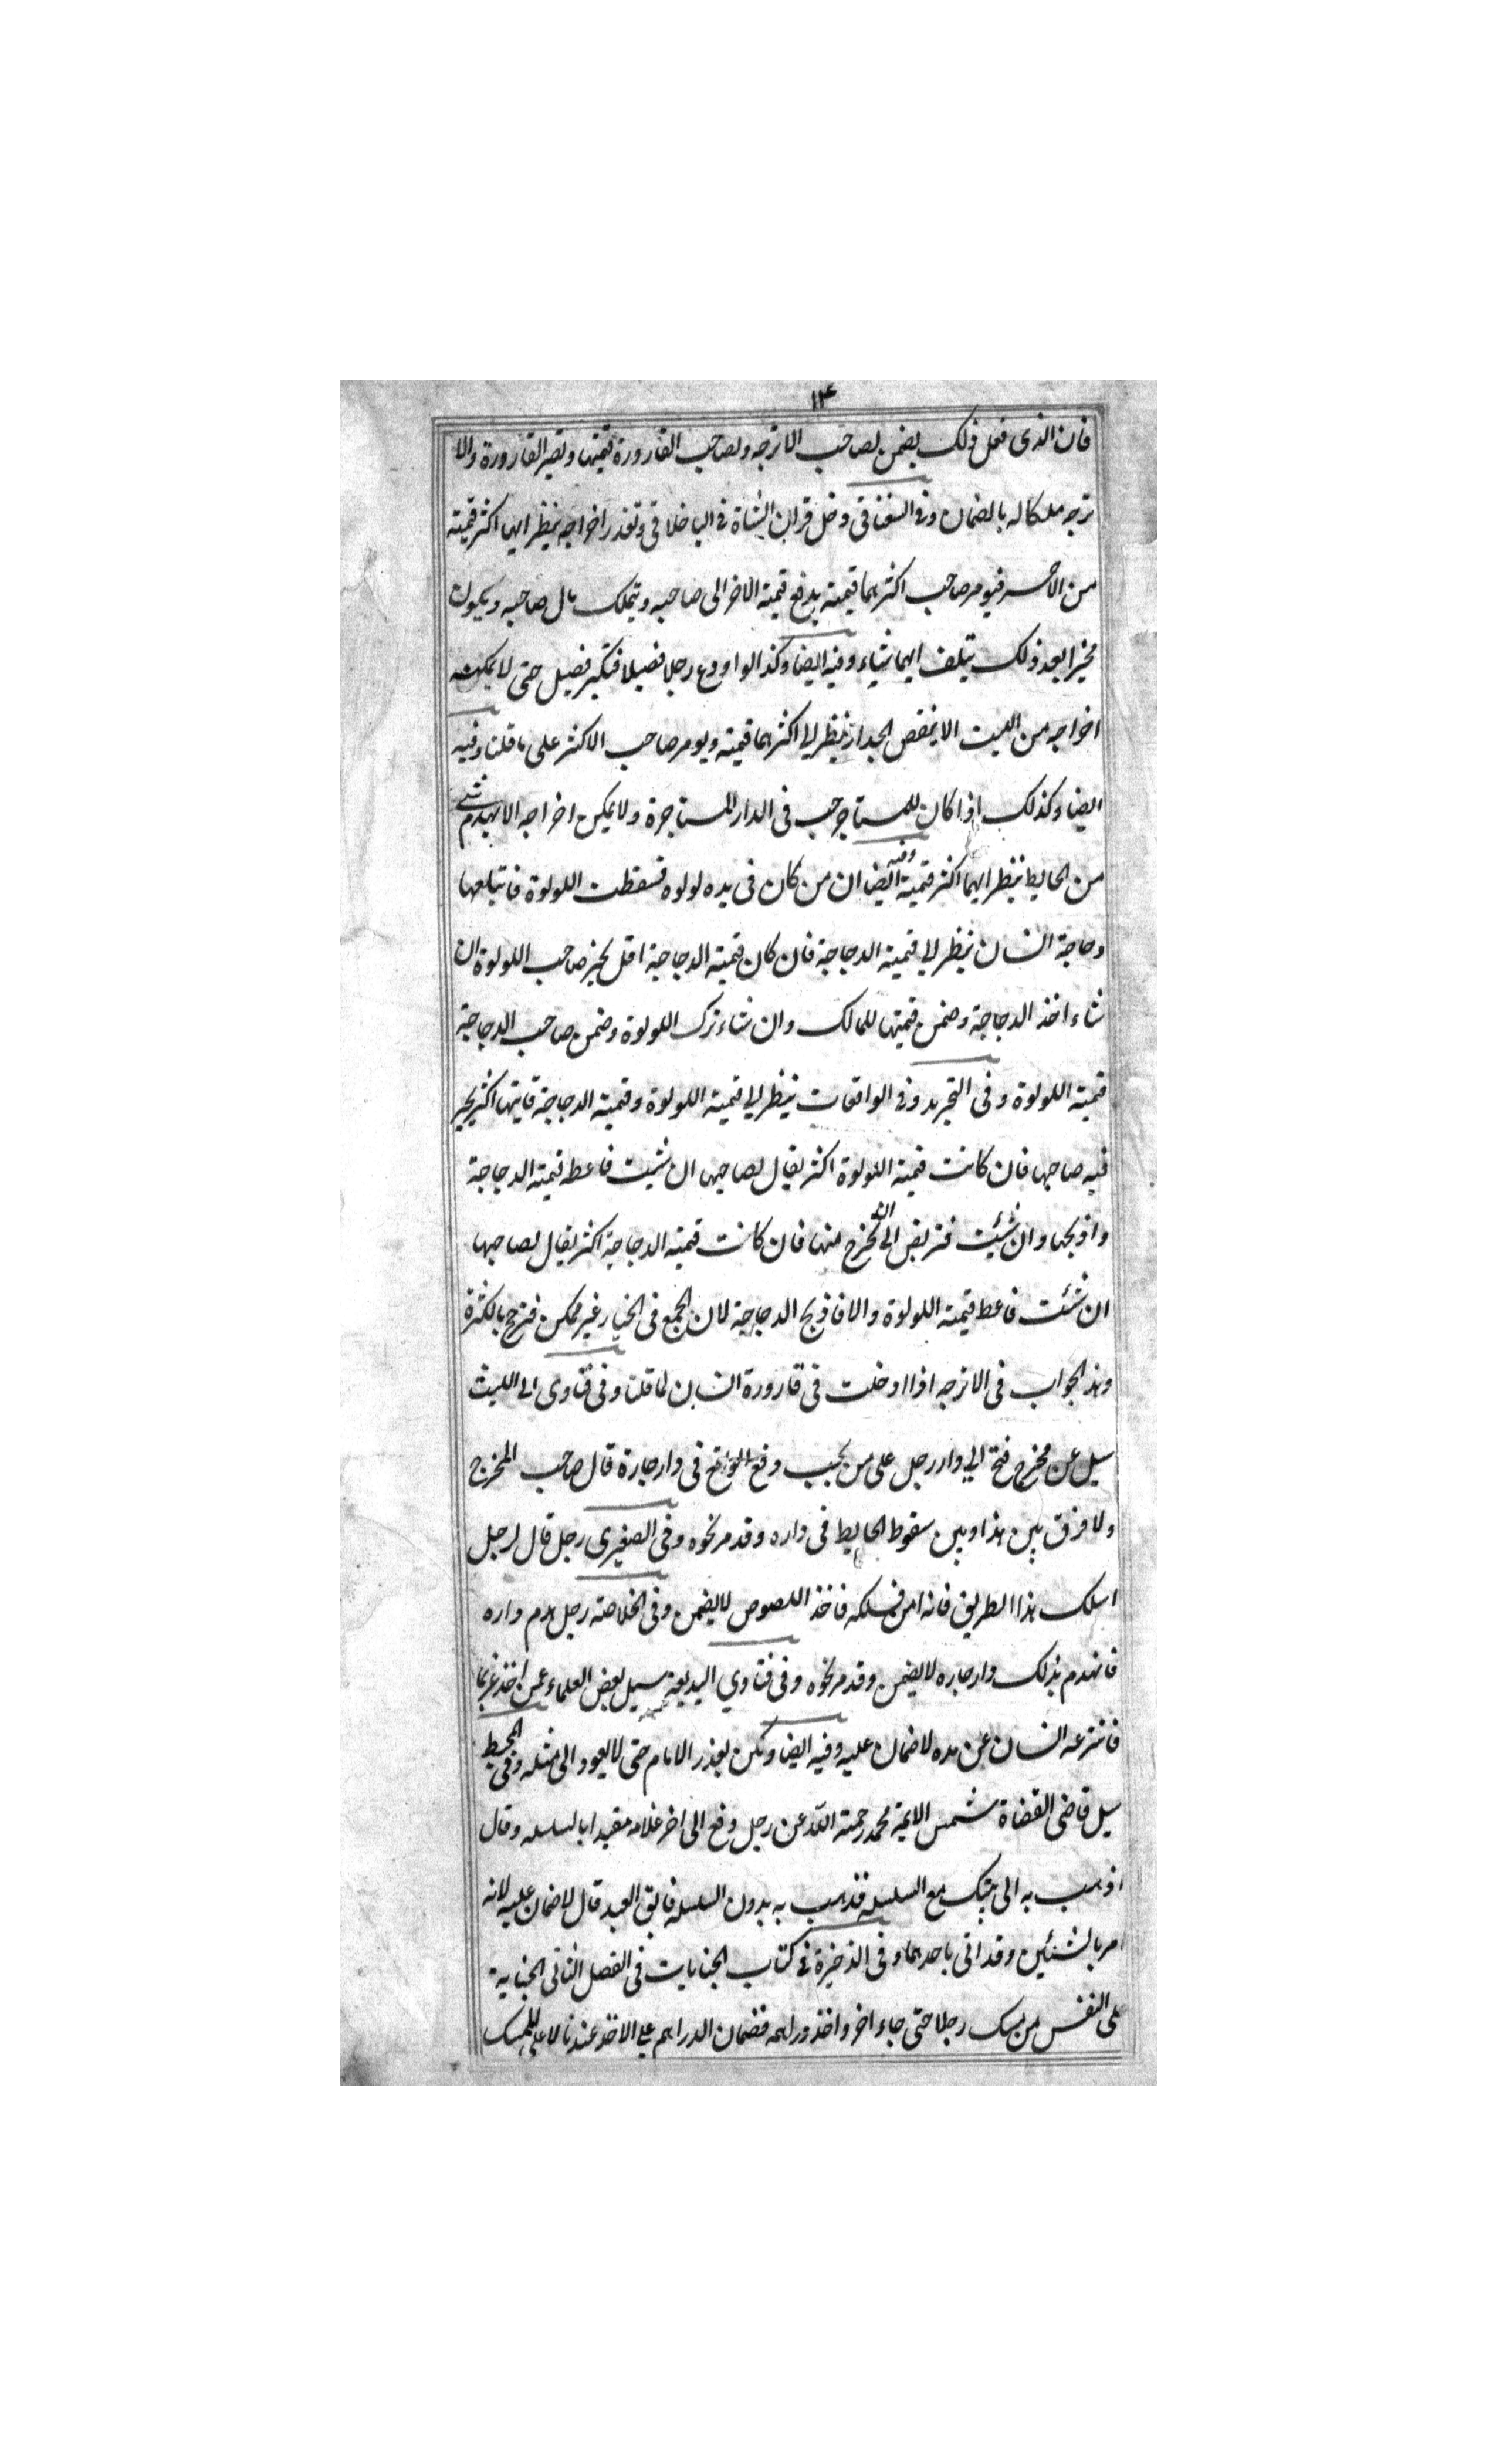 ١٤
فان الذى فعل ذلك يضمن لصاحب الاترجه ولصاحب القارورة قيمتها وتصير القارورة والا
ترجه ملكا له بالضمان وفى السغناقى دخل قران الشاة فى الباخلاقى وتعذر اخراجه ينظر ايهما اكثر قيمته
من الاخر فيومر صاحب اكثرهما قيمته بدفع قيمته الاخر الى صاحبه ويتملك مال صاحبه ويكون
مخيرا بعد ذلك يتلف ايهما شياء وفيه ايضا وكذا لو اودع رجلا فصيلا فكبر فصيل حتى لا يمكنه
اخراجه من البيت الا بنقض الجدار ينظر الى اكثرهما قيمته ويومر صاحب الاكثر على ما قلنا وفيه
ايضا وكذلك اذا كان للمستاجر حب فى الدار المستاجرة ولا يمكن اخراجه الا بهدم شى
من الحايط ينظر ايهما اكثر قيمته وفيه ايضا ان من كان فى يده لولوه فسقطت اللولوة فابتلعها
دجاجة انسان ينظر الى قيمته الدجاجة فان كان قيمته الدجاجة اقل يخير صاحب اللولوة ان
شاء اخذ الدجاجة وضمن قيمتها للمالك وان شاء ترك اللولوة وضمن صاحب الدجاجة
قيمته اللولوة وفى التجريد وفى الواقعات ينظر الى قيمته اللولوة وقيمته الدجاجة فايتها اكثر يخير
فيه صاحبها فان كانت قيمته اللولوة اكثر يقال لصاحبها ان شيت فاعطه قيمته الدجاجة
واذبحها وان شئت فتربص الى ان تخرج منها فان كانت قيمته الدجاجة اكثر يقال لصاحبها
ان شئت فاعط قيمته اللولوة والا فاذبح الدجاجة لان الجمع فى الخيار غير ممكن فترجح بالكثرة
وهذ الجواب فى الاترجه اذا ادخلت فى قارورة انسان لما قلنا وفى فتاوى ابى الليث
سيل عن مخرج فتح الى دار رجل على من يجب رفع الواقع فى دار جاره قال صاحب المخرج
ولا فرق بين هذا وبين سقوط الحايط فى داره وقد مر نحوه وفى الصغيرى رجل قال لرجل
اسلك هذا الطريق فانه امن فسلكه فاخذ اللصوص لا يضمن وفى الخلاصته رجل هدم داره
فانهدم بذلك دار جاره لا يضمن وقد مر نحوه وفى فتاوي البديعة سيل بعض العلماء عمن اخذ غريما
فانتزعه انسان عن يده لا ضمان عليه وفيه ايضا ولكن يعذر الامام حتى لا يعود الى مثله وفى المحيط
سيل قاضى القضاة شمس الايمة محمد رحمته الله عن رجل دفع الى اخر غلامه مقيدا بالسلسله وقال
اذهب به الى بيتك مع السلسله فذهب به بدون السلسله فابق العبد قال لا ضمان عليه لانه
امر بالشئين وقد اتى باحدهما وفى الذخيرة فى كتاب الجنايات فى الفصل الثانى الجناية
على النفس من يمسك رجلا حتى جاء اخر واخذ دراهمه فضمان الدراهم على الاخذ عندنا لا على الممسك